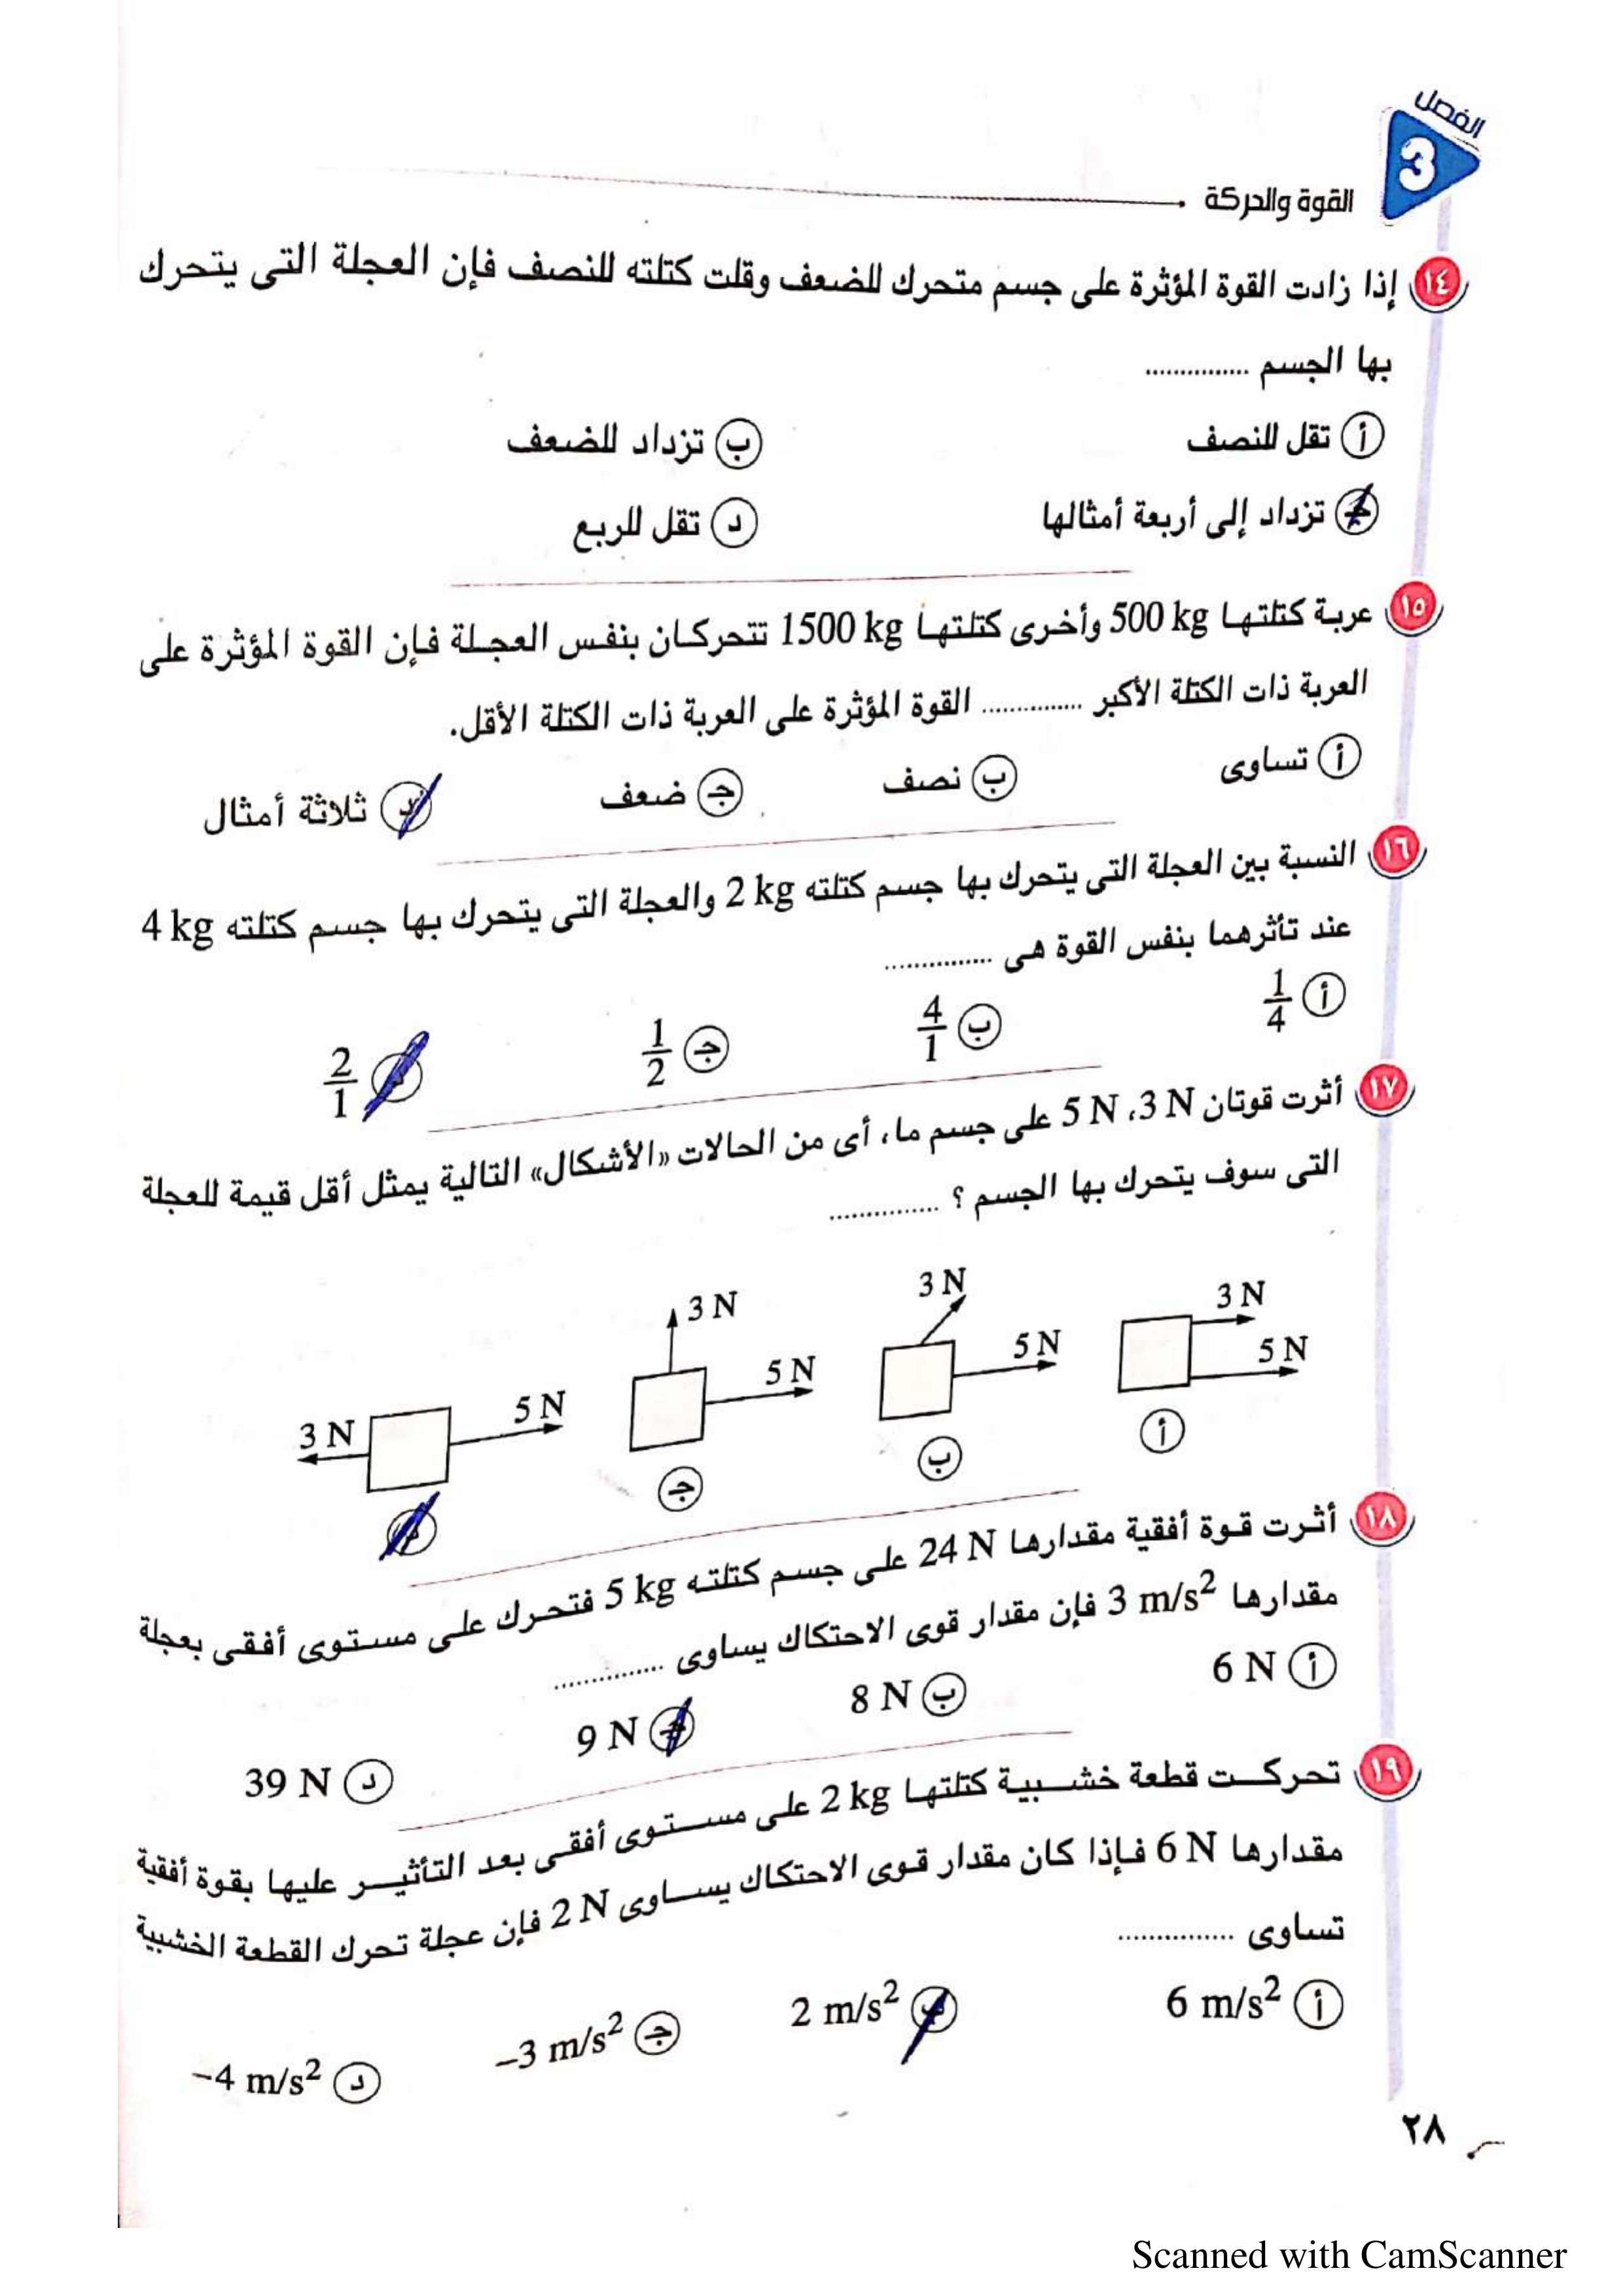 الفصل
3
القوة والحركة
١٤ إذا زادت القوة المؤثرة على جسم متحرك للضعف وقلت كتلته للنصف فإن العجلة التى يتحرك
بها الجسم ...............
أ تقل للنصف
ب تزداد للضعف
جـ تزداد إلى أربعة أمثالها
د تقل للربع
١٥ عربة كتلتها 500 kg وأخرى كتلتها 1500 kg تتحركان بنفس العجلة فإن القوة المؤثرة على
العربة ذات الكتلة الأكبر ............... القوة المؤثرة على العربة ذات الكتلة الأقل.
أ تساوى
ب نصف
جـ ضعف
د ثلاثة أمثال
١٦ النسبة بين العجلة التى يتحرك بها جسم كتلته 2 kg والعجلة التى يتحرك بها جسم كتلته 4 kg
عند تأثرهما بنفس القوة هى ...............
أ 1/4
ب 4/1
جـ 1/2
د 2/1
١٧ أثرت قوتان 3 N، 5 N على جسم ما، أى من الحالات «الأشكال» التالية يمثل أقل قيمة للعجلة
التى سوف يتحرك بها الجسم ؟ ...............
3 N
5 N
أ
3 N
5 N
ب
3 N
5 N
جـ
3 N
5 N
د
١٨ أثرت قوة أفقية مقدارها 24 N على جسم كتلته 5 kg فتحرك على مستوى أفقى بعجلة
مقدارها 3 m/s² فإن مقدار قوى الاحتكاك يساوى ...............
أ 6 N
ب 8 N
جـ 9 N
د 39 N
١٩ تحركت قطعة خشبية كتلتها 2 kg على مستوى أفقى بعد التأثير عليها بقوة أفقية
مقدارها 6 N فإذا كان مقدار قوى الاحتكاك يساوى 2 N فإن عجلة تحرك القطعة الخشبية
تساوى ...............
أ 6 m/s²
ب 2 m/s²
جـ –3 m/s²
د –4 m/s²
٢٨
Scanned with CamScanner